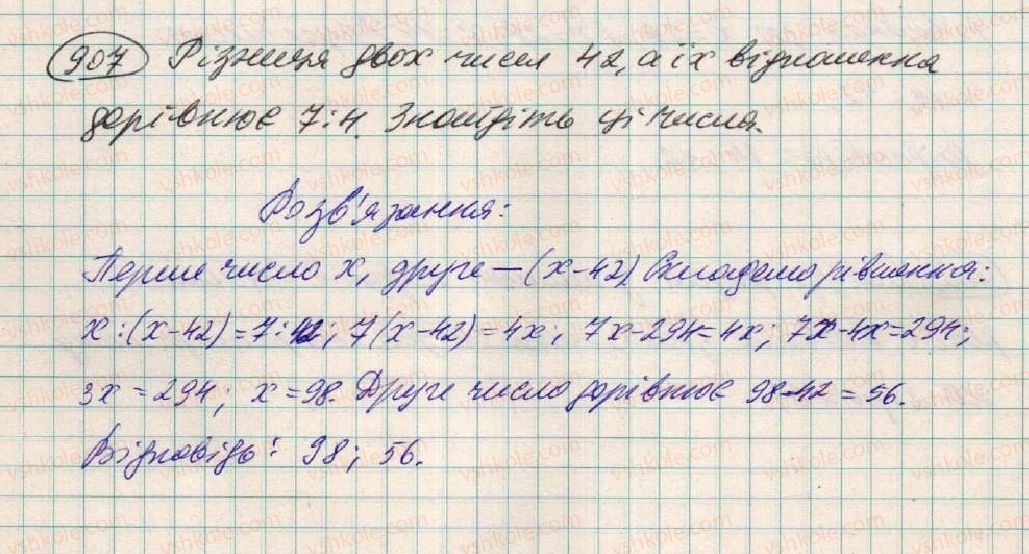 907 Різниця двох чисел 42, а їх відношення
дорівнює 7:4. Знайдіть ці числа.
Розв'язання:
Перше число x, друге – (x-42). Складемо рівняння:
x:(x-42)=7:4; 7(x-42)=4x; 7x-294=4x; 7x-4x=294;
3x=294; x=98. Друге число дорівнює 98-42=56.
Відповідь: 98; 56.